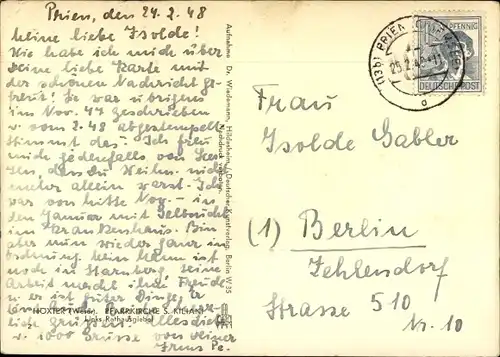 Prien, den 24.2.48
Meine liebe Isolde!
Wie habe ich mich über
deine liebe Karte mit
der schönen Nachricht ge-
freut! Sie war übrigens
im Nov. 47 geschrieben
u. vom 2.48 abgestempelt.
Stimmt das? Ich freu
mich jedenfalls von Her-
zen, dass Du Weihn. nicht
mehr allein warst. Ich
war von Mitte Nov. - in
den Januar mit Gelbsucht
im Krankenhaus. Bin
aber nun wieder ganz in
Ordnung. Mein Mann ist
noch in Starnberg, seine
Arbeit macht ihm Freude
u. er ist guter Dinge.
liebe Grüsse! Alles Liebe
u. 1000 Grüsse von Deiner
Aufnahme Dr. Wiedemann, Hildesheim, Deutscher Kunstverlag, Berlin W 35
Nachdruck verboten
HÖXTER (Weser), PFARRKIRCHE S. KILIANI
Links Rathausgiebel
(13b) PRIEN
25.2.48
a
PFENNIG
DEUTSCHE POST
Frau
Isolde Gabler
(1) Berlin
Zehlendorf
Strasse 510
Nr. 10